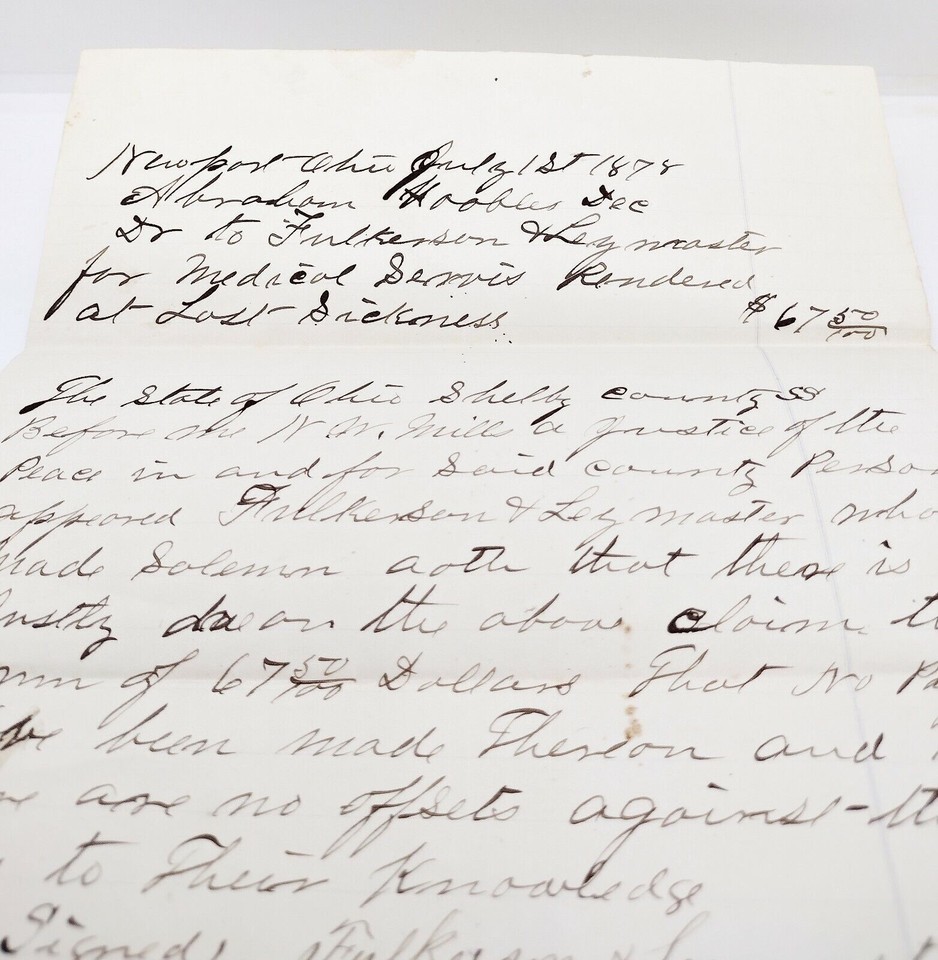 Newport Ohio July 1st 1878
Abraham Hoobler Dec
Dr to Fulkerson & Leymaster
for Medical Servis Rendered
at Last Sickness $67 50/100
The State of Ohio Shelby county SS
Before me N. W. Mills a Justice of the
Peace in and for Said county Person
appeared Fulkerson & Leymaster who
made Solemn aoth that there is
Justly due on the above claim
of 67 50/100 Dollars That No
been made Thereon and
are no offsets against
to Their Knowledge
Signed Fulkerson &